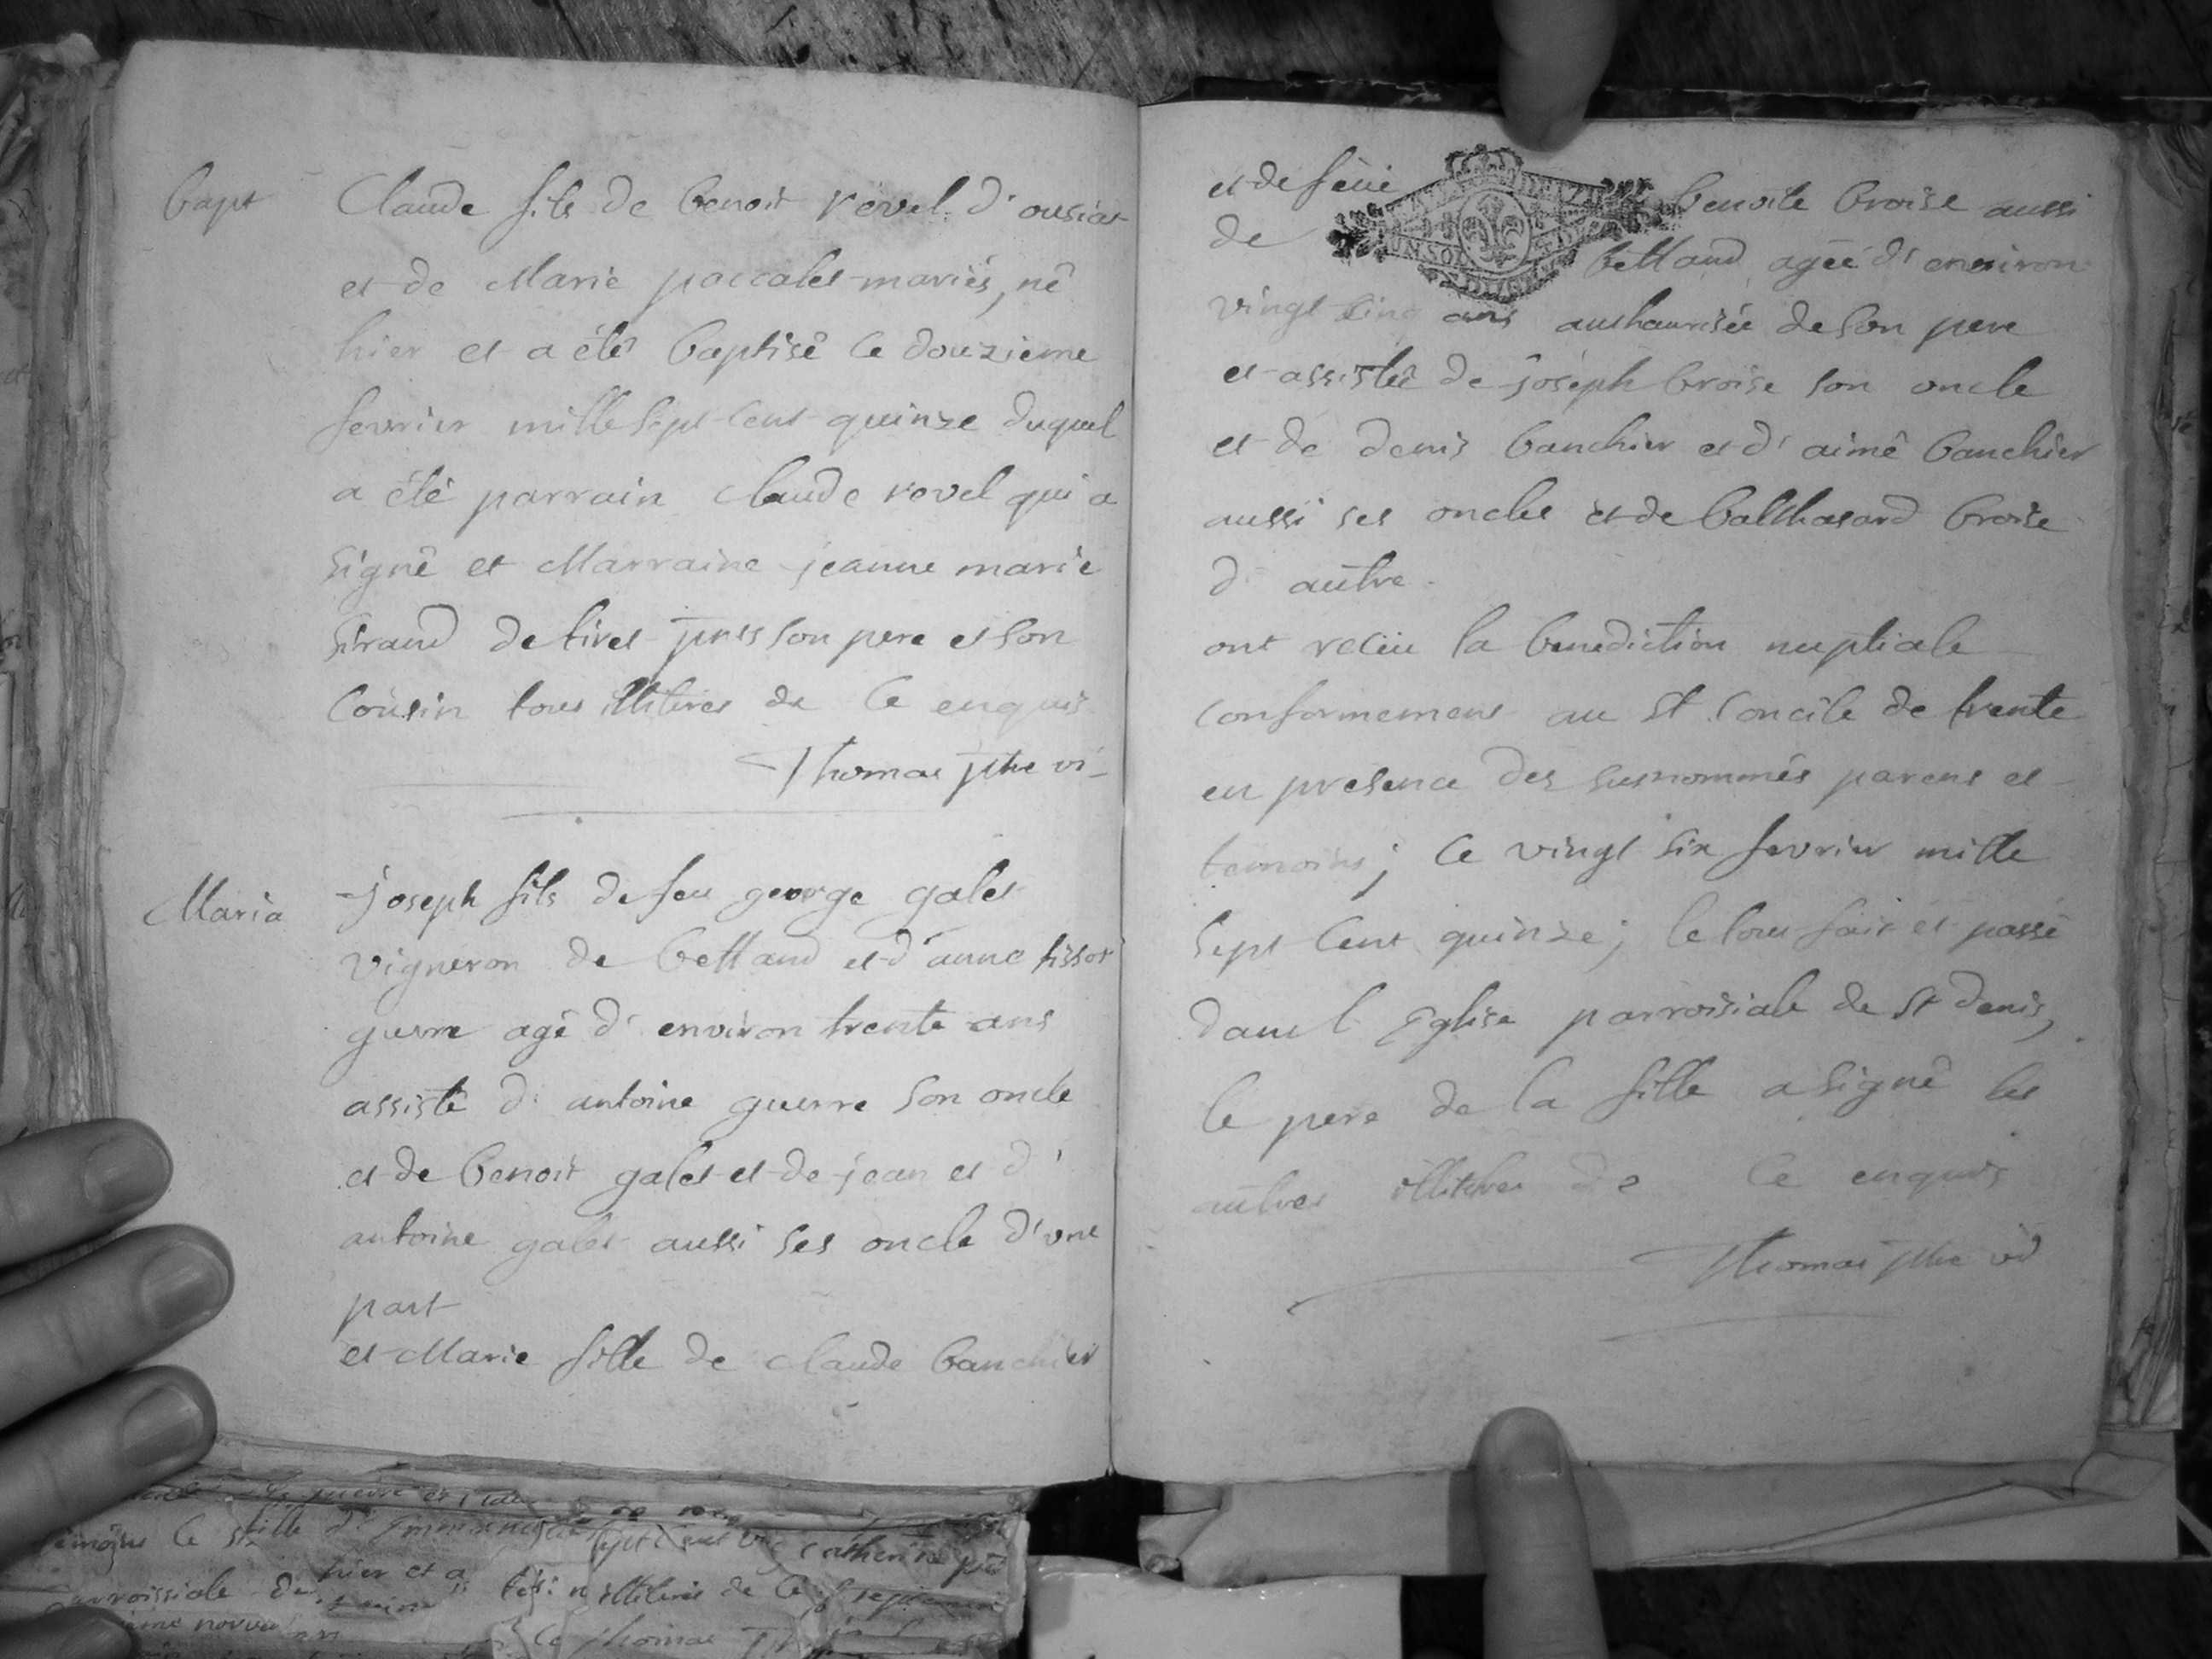 bapt
Claude fils de benoit revel d'ousiat
et de Marie paccalet mariés, né
hier et a été baptisé ce douzieme
fevrier mille sept cent quinze duquel
a été parrain claude revel qui a
signé et Marraine jeanne marie
siraud de tiret pnts son pere et son
cousin tous illiteres de ce enquis
Thomas ptre vi
Maria
joseph fils de feu george galet
vigneron de bettand et d'anne tissot
guerre agé d'environ trente ans
assisté d'antoine guerre son oncle
et de benoit galet et de jean et d'
antoine galet aussi ses oncle d'une
part
et Marie fille de claude banchier
et de feüe benoite broise aussi
de bettand agée d'environ
vingt cinq ans authaurisée de son pere
et assistée de joseph broise son oncle
et de denis banchier et d'aimé banchier
aussi ses oncles et de balthasard broise
d'autre.
ont receu la benediction nuptiale
conformement au st concile de trente
en presence des susnommés parens et
temoins; ce vingt six fevrier mille
sept cent quinze; le tout fait et passé
dans l'Eglise parroisiale de st denis,
le pere de la fille a signé les
autres illiteres de ce enquis
Thomas ptre vi